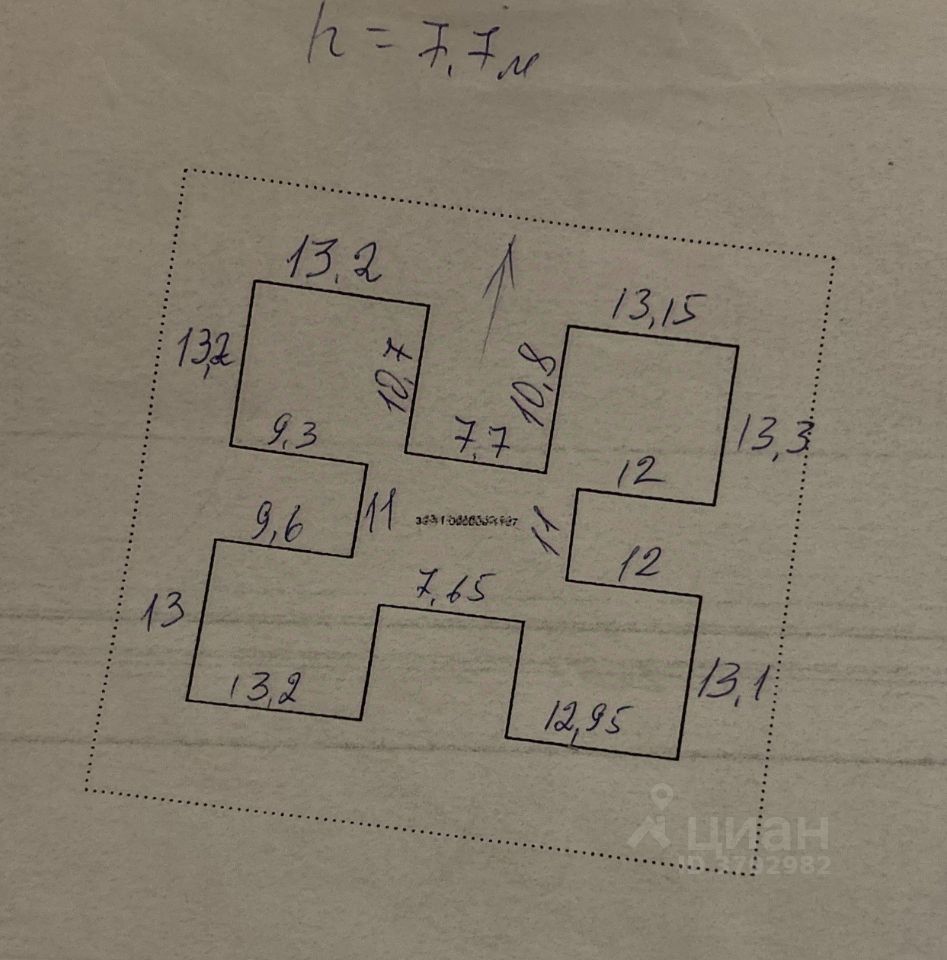 h = 7,7м
13,2
13,15
13,2
10,7
10,8
13,3
9,3
7,7
12
9,6
11
11
12
13
7,65
13,1
13,2
12,95
циан
ID 3792982